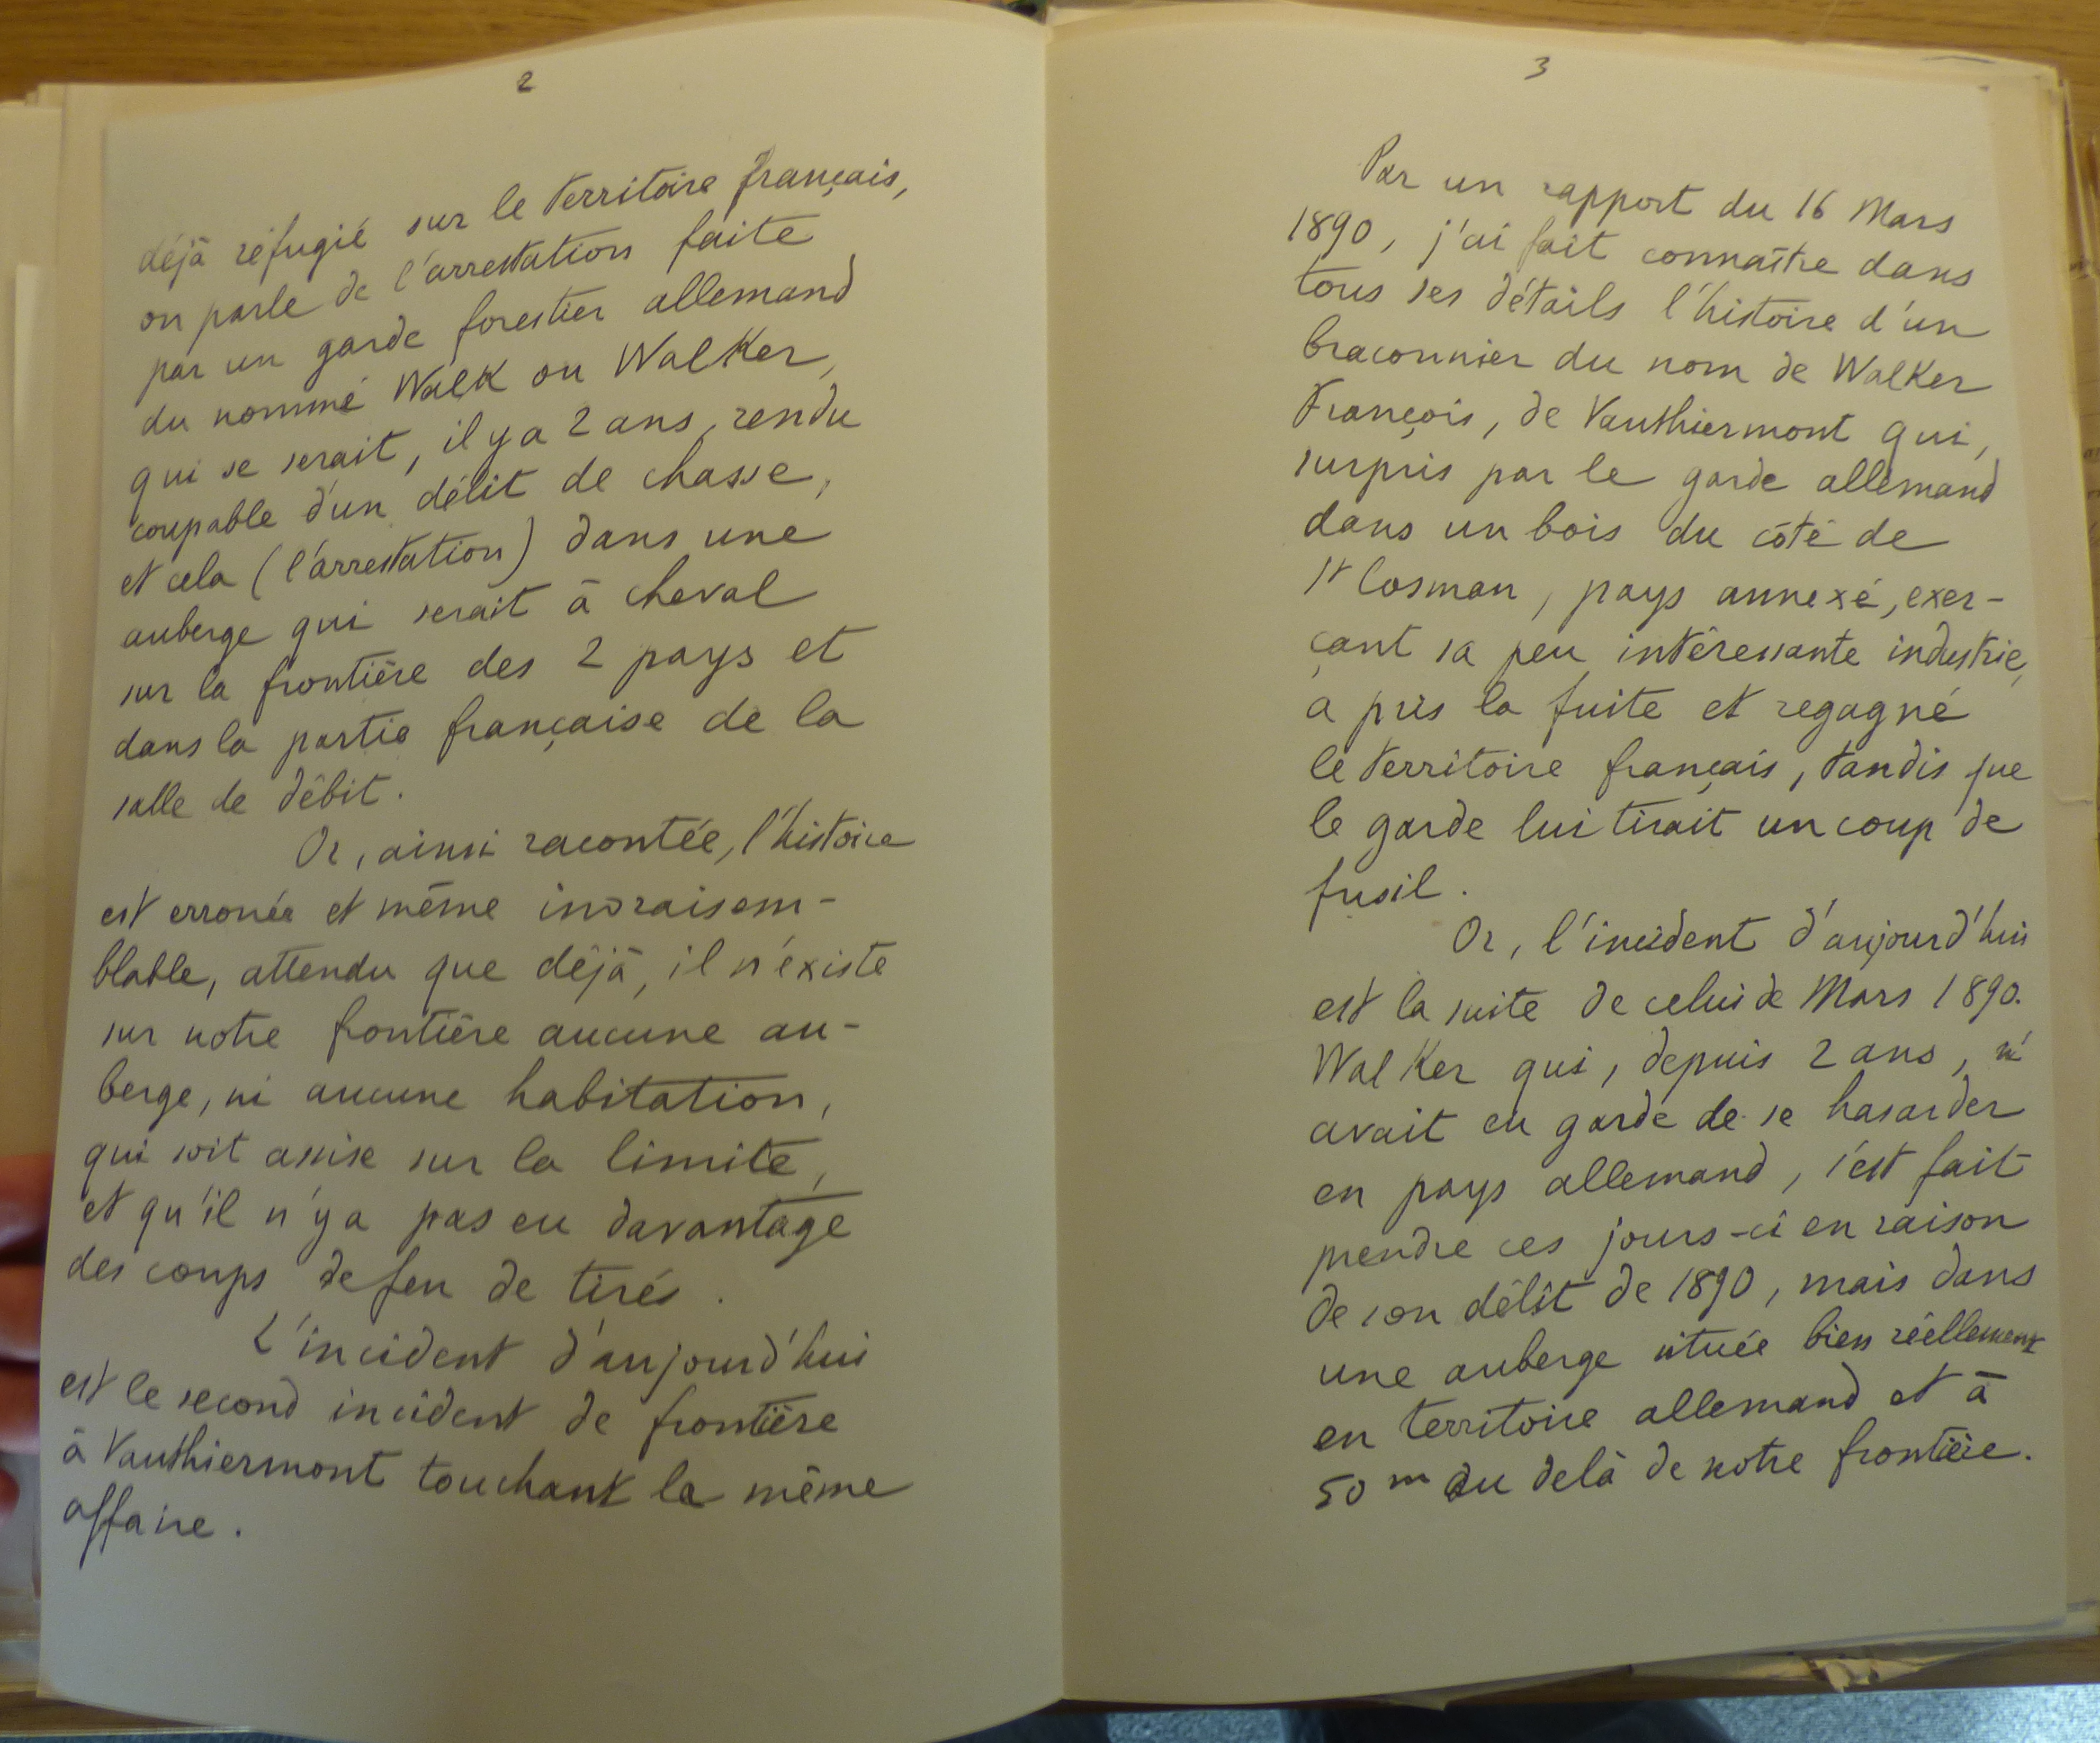 2
déjà réfugié sur le territoire français,
on parle de l'arrestation faite
par un garde forestier allemand
du nommé Walk ou Walker,
qui se serait, il y a 2 ans, rendu
coupable d'un délit de chasse,
et cela (l'arrestation) dans une
auberge qui serait à cheval
sur la frontière des 2 pays et
dans la partie française de la
salle de débit.
Or, ainsi racontée, l'histoire
est erronée et même invraisem-
blable, attendu que déjà, il n'existe
sur notre frontière aucune au-
berge, ni aucune habitation,
qui soit assise sur la limite,
et qu'il n'y a pas eu davantage
des coups de feu de tirés.
L'incident d'aujourd'hui
est le second incident de frontière
à Vauthiermont touchant la même
affaire.
3
Par un rapport du 16 Mars
1890, j'ai fait connaître dans
tous ses détails l'histoire d'un
braconnier du nom de Walker
François, de Vauthiermont qui,
surpris par le garde allemand
dans un bois du côté de
St Cosman, pays annexé, exer-
çant sa peu intéressante industrie,
a pris la fuite et regagné
le territoire français, tandis que
le garde lui tirait un coup de
fusil.
Or, l'incident d'aujourd'hui
est la suite de celui de Mars 1890.
Walker qui, depuis 2 ans, n'
avait eu garde de se hasarder
en pays allemand, s'est fait
prendre ces jours-ci en raison
de son délit de 1890, mais dans
une auberge située bien réellement
en territoire allemand et à
50 m au delà de notre frontière.